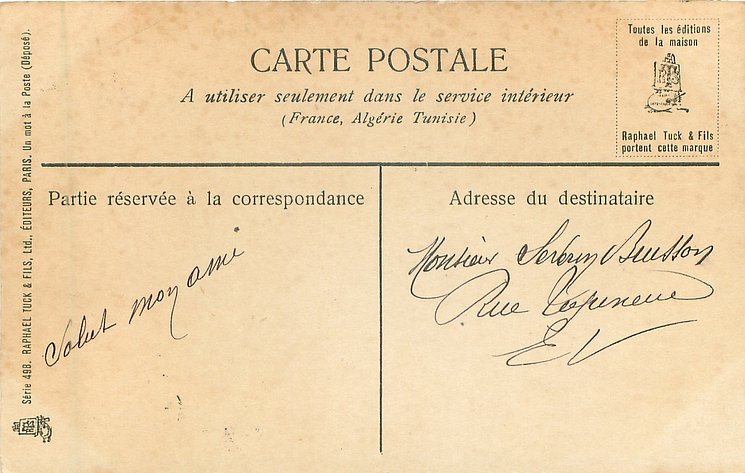 CARTE POSTALE
A utiliser seulement dans le service intérieur
(France, Algérie Tunisie)
Toutes les éditions
de la maison
Raphael Tuck & Fils
portent cette marque
Série 498. RAPHAEL TUCK & FILS, Ltd., ÉDITEURS, PARIS. Un mot à la Poste (Déposé).
Partie réservée à la correspondance
Salut mon ami
Adresse du destinataire
Monsieur Buisson
Rue
EV